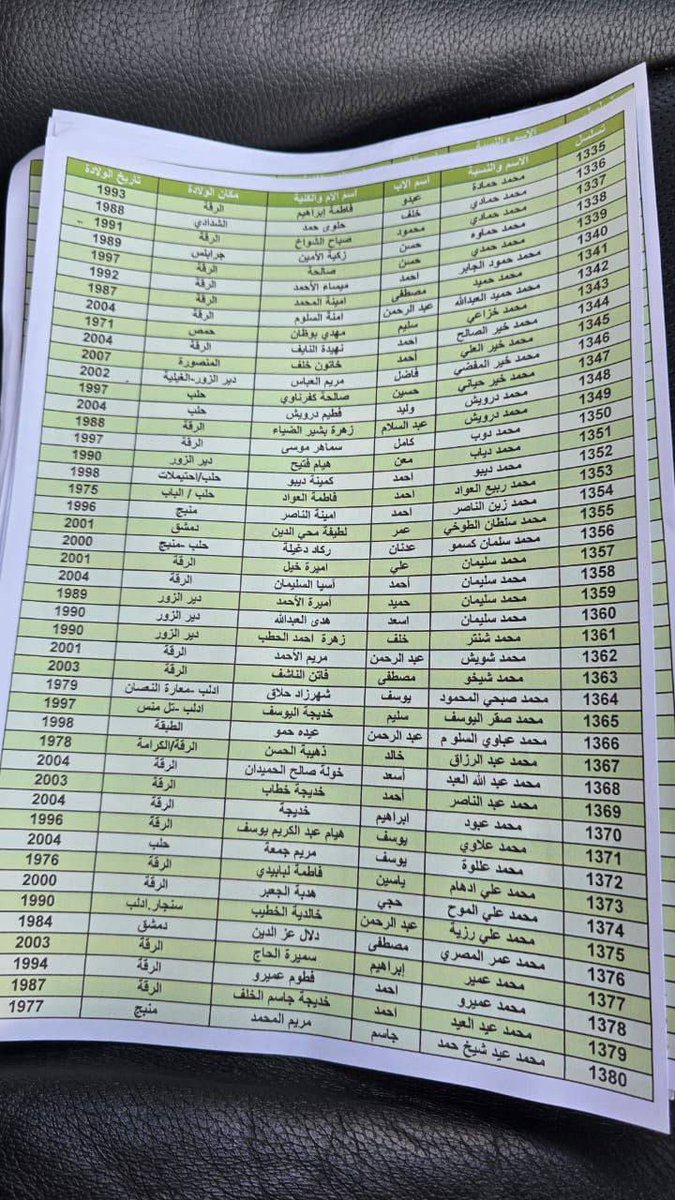 تسلسل الاسم والنسبة اسم الاب اسم الام والكنية مكان الولادة تاريخ الولادة
1335 محمد حمادة عبدو فاطمة إبراهيم الرقة 1993
1336 محمد حمادي خلف حلوى حمد الشدادي 1988
1337 محمد حمادي محمود صباح الشواخ الرقة 1991
1338 محمد حماوه حسن زكية الأمين جرابلس 1989
1339 محمد حمدي حسن صالحة الرقة 1997
1340 محمد حمود الجابر احمد ميساء الأحمد الرقة 1992
1341 محمد حميد مصطفى امينة المحمد الرقة 1987
1342 محمد حميد العبدالله عبد الرحمن امنة السلوم الرقة 2004
1343 محمد خزاعي سليم مهدي بوظان حمص 1971
1344 محمد خير الصالح احمد نهيدة النايف الرقة 2004
1345 محمد خير العلي احمد خاتون خلف المنصورة 2007
1346 محمد خير المفضي فاضل مريم العباس دير الزور-الغيلية 2002
1347 محمد خير حياني حسين صالحة كفرناوي حلب 1997
1348 محمد درويش وليد فطيم درويش حلب 2004
1349 محمد درويش عبد السلام زهرة بشير الضياء الرقة 1988
1350 محمد دوب كامل سماهر موسى الرقة 1997
1351 محمد دياب معن هيام فتيح دير الزور 1990
1352 محمد ديبو احمد كمينة ديبو حلب/احتيملات 1998
1353 محمد ربيع العواد احمد فاطمة العواد حلب / الباب 1975
1354 محمد زين الناصر احمد امينة الناصر منبج 1996
1355 محمد سلطان الطوخي عمر لطيفة محي الدين دمشق 2001
1356 محمد سلمان كسمو عدنان ركاد دغيلة حلب -منبج 2000
1357 محمد سليمان علي اميرة خيل الرقة 2001
1358 محمد سليمان أحمد آسيا السليمان الرقة 2004
1359 محمد سليمان حميد أميرة الأحمد دير الزور 1989
1360 محمد سليمان اسعد هدى العبدالله دير الزور 1990
1361 محمد شنتر خلف زهرة احمد الحطب دير الزور 1990
1362 محمد شويش عبد الرحمن مريم الأحمد الرقة 2001
1363 محمد شيخو مصطفى فاتن الناشف الرقة 2003
1364 محمد صبحي المحمود يوسف شهرزاد حلاق ادلب -معارة النعسان 1979
1365 محمد صقر اليوسف سليم خديجة اليوسف ادلب -تل منس 1997
1366 محمد عباوي السلوم عبد الرحمن عيده حمو الطبقة 1998
1367 محمد عبد الرزاق خالد ذهيبة الحسن الرقة/الكرامة 1978
1368 محمد عبد الله العبد أسعد خولة صالح الحميدان الرقة 2004
1369 محمد عبد الناصر أحمد خديجة خطاب الرقة 2003
1370 محمد عبود ابراهيم خديجة الرقة 2004
1371 محمد علاوي يوسف هيام عبد الكريم يوسف الرقة 1996
1372 محمد عللوة يوسف مريم جمعة حلب 2004
1373 محمد علي ادهام ياسين فاطمة لبابيدي الرقة 1976
1374 محمد علي الموح حجي هدبة الجعبر الرقة 2000
1375 محمد علي رزية عبد الرحمن خالدية الخطيب سنجار.ادلب 1990
1376 محمد عمر المصري مصطفى دلال عز الدين دمشق 1984
1377 محمد عمير إبراهيم سميرة الحاج الرقة 2003
1378 محمد عميرو احمد فطوم عميرو الرقة 1994
1379 محمد عيد العيد احمد خديجة جاسم الخلف الرقة 1987
1380 محمد عيد شيخ حمد جاسم مريم المحمد منبج 1977